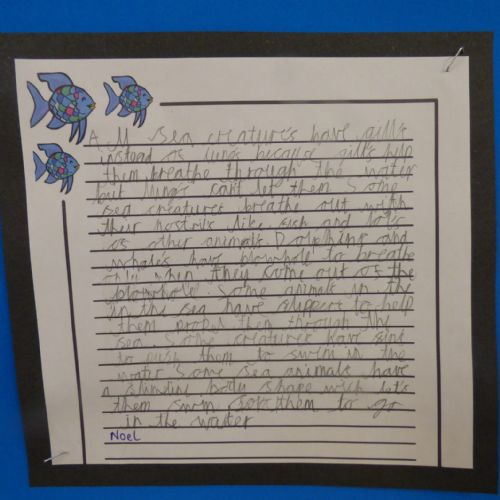 All sea creatures have gills
instead of lungs because gills help
them breathe through the water
but lungs can't let them Some
sea creatures breathe out with
their nostrils like fish and lots
of other animals. Dolphins and
whales have blowhole to breathe
when they come out of the
blowhole some animals in the
in the sea have flippers to help
them propel them through the
sea Some creatures have fins
to push them to swim in the
water Some sea animals have
a body shape wich let's
them swim them to go
in the water
Noel